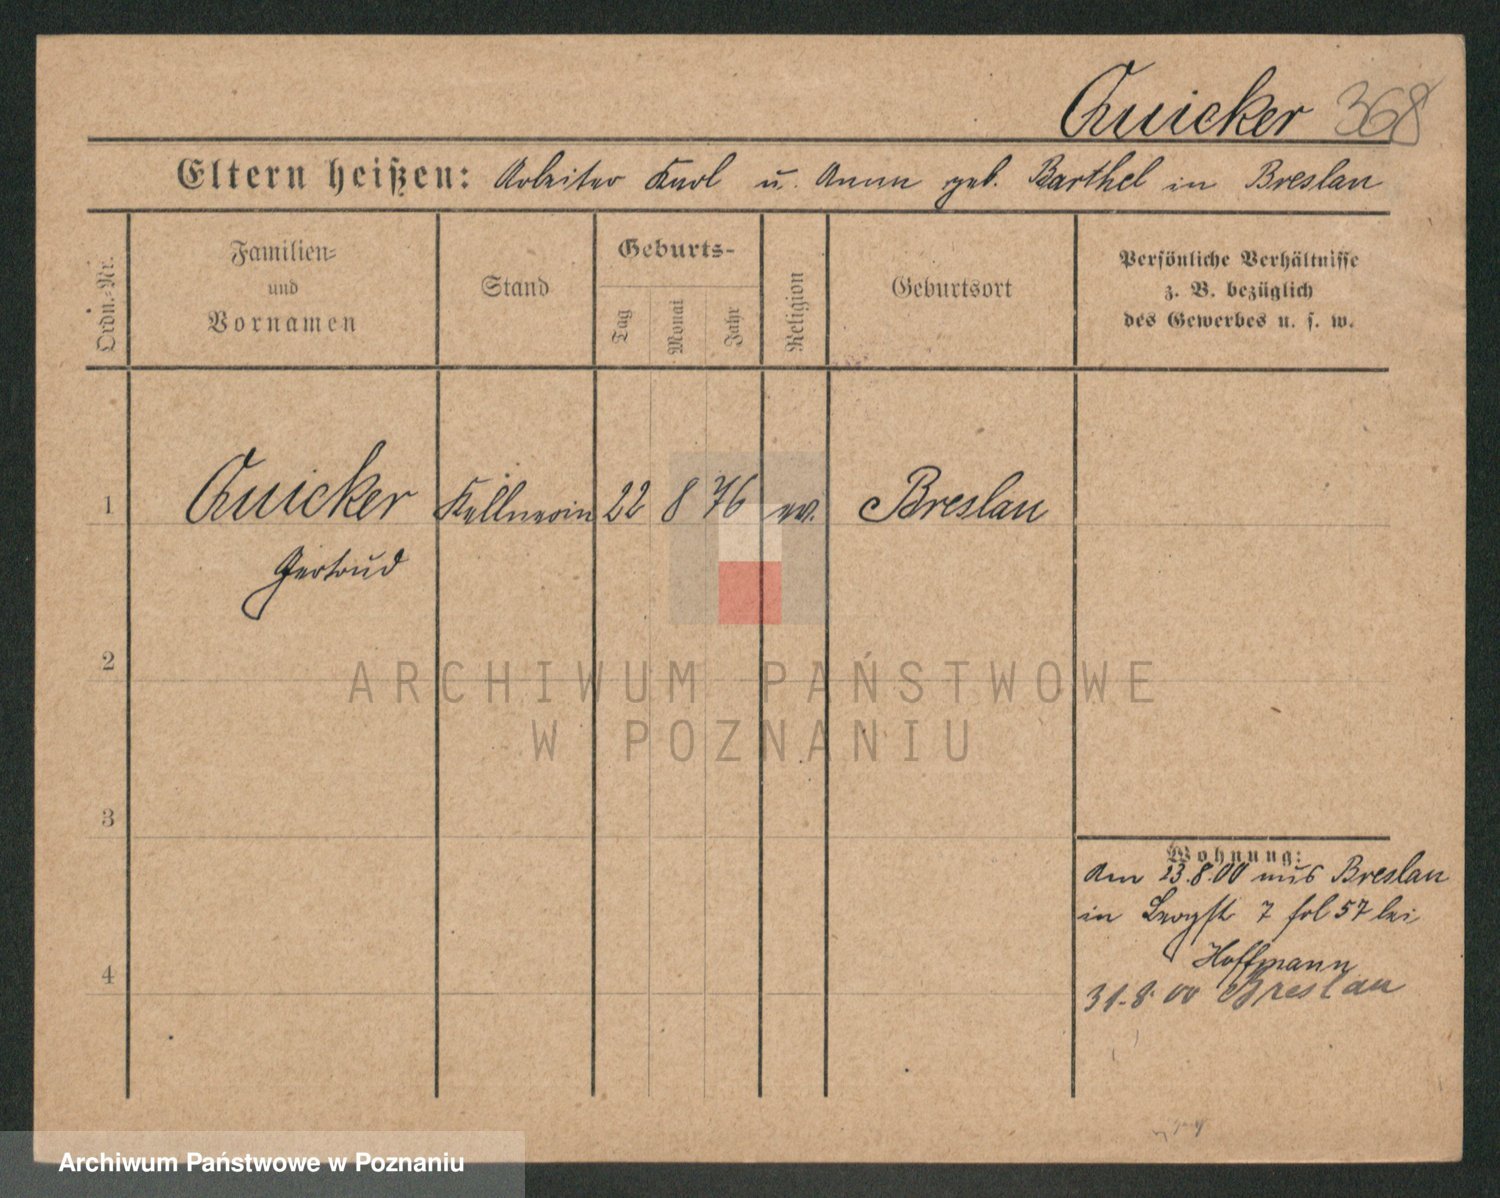 Quicker 368
Eltern heißen: Arbeiter Karl u. Anna geb. Barthel in Breslau
Ordn.-Nr.
Familien-
und
Vornamen
Stand
Geburts-
Tag
Monat
Jahr
Religion
Geburtsort
Persönliche Verhältnisse
z. B. bezüglich
des Gewerbes u. s. w.
1 Quicker Kellnerin 22 8 76 ev. Breslau
Gertrud
2
ARCHIWUM PAŃSTWOWE
W POZNANIU
3
Wohnung:
Am 23.8.00 aus Breslau
in 7 fol 57 bei
Hoffmann
4
31.8.00 Breslau
Archiwum Państwowe w Poznaniu